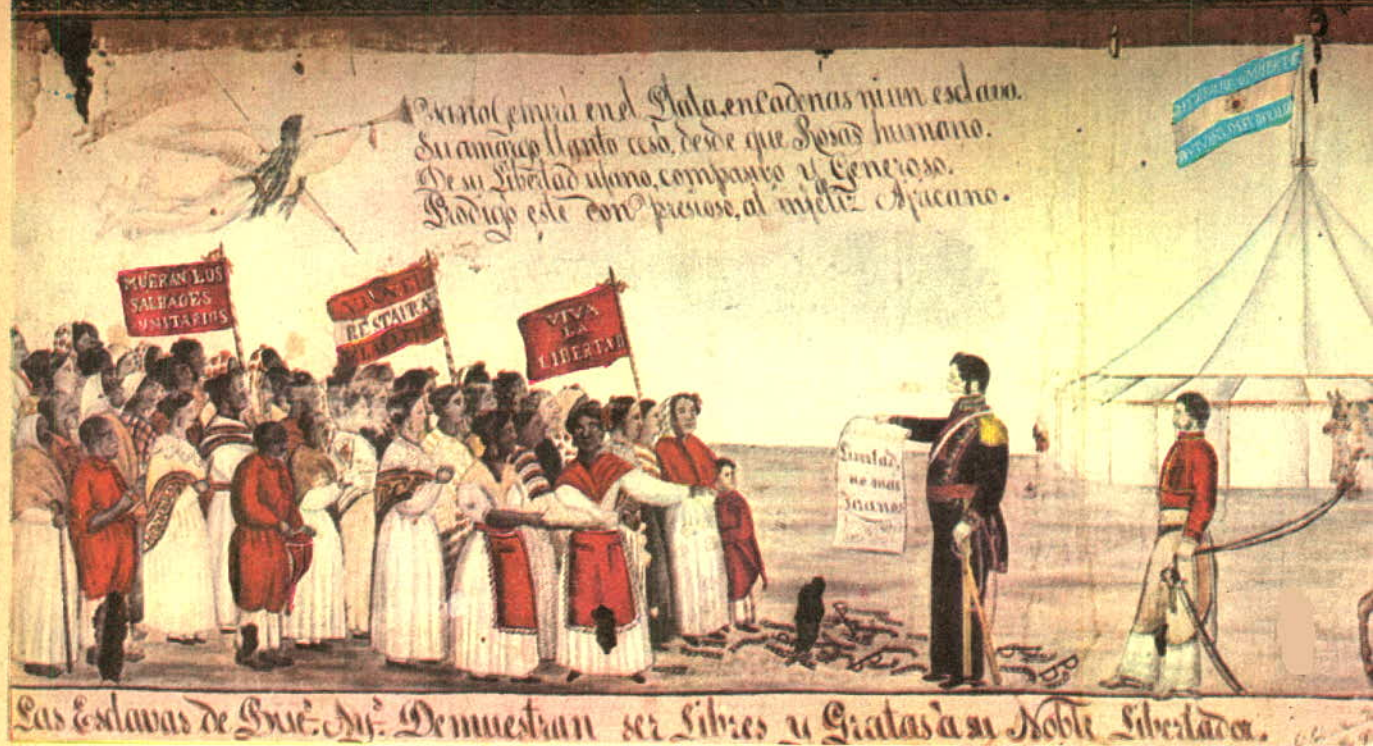 Gemirá en el Plata, en Cadenas ni un esclavo.
Su amargo llanto cesó, desde que Rosas humano.
De su Libertad ufano, compasivo y Generoso,
Prodigó este don presioso, al infeliz Africano.
MUERAN LOS
SALBAGES
UNITARIOS
VIVA EL
RESTAURA
VIVA
LA
LIBERTAD
no mas
Tiranos
Las Esclavas de Bueˢ Ayˢ Demuestran ser Libres y Gratas à su Noble Libertador.